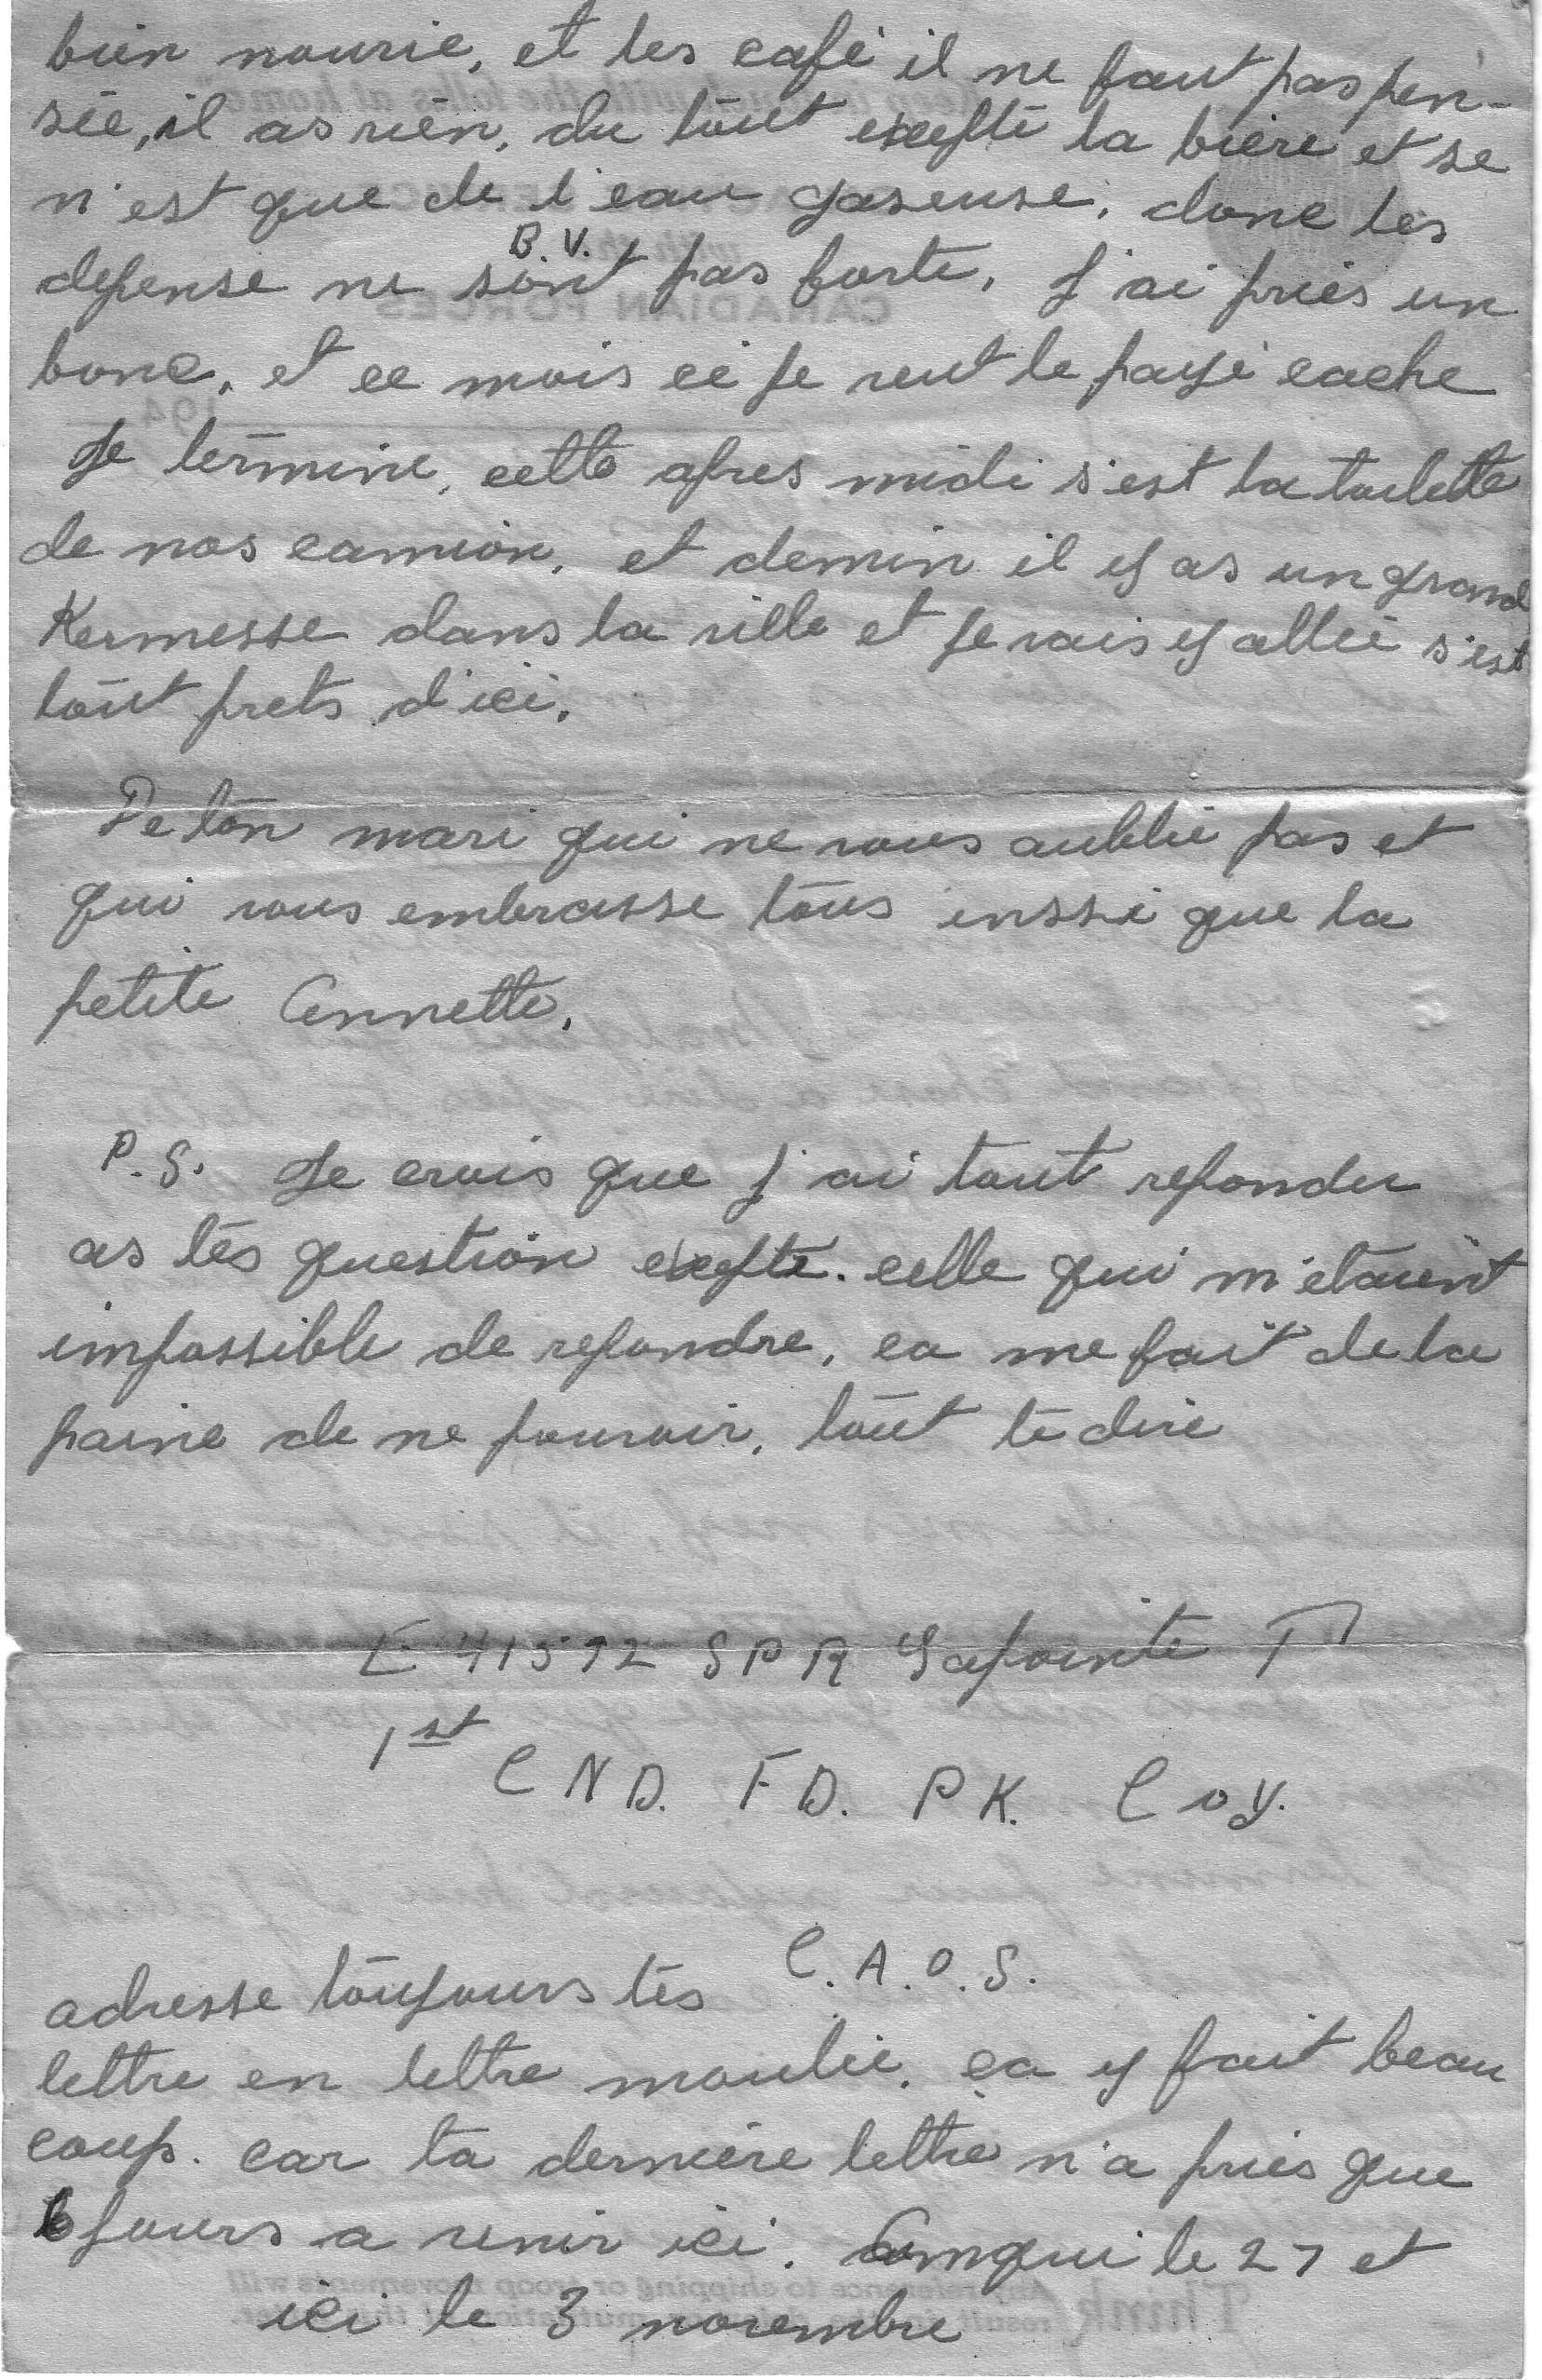 bien nourie, et les café il ne faut pas pen-
sée, il as rien, du tout excepté la bière et se
n'est que de l'eau gaseuse, donc les
B. V.
depense ne sont pas forte, j'ai priés un
bone, et ce mois ci je veut le payé cache
Je termine, cette apres midi s'est la toilette
de nos camion, et demin il y as un grand
Kermesse dans la ville et je vais y allée s'est
tout prets d'ici.
De ton mari qui ne vous oublie pas et
qui vous embrasse tous inssi que la
petite Annette.
P.S. Je crois que j'ai tout repondu
as tes question excepté celle qui m'etaient
impossible de repondre, ca me fait de la
paine de ne pouvoir, tout te dire
E 41592 SPR Lapointe T
1st CND. FD. PK. Coy.
C.A.O.S.
adresse toujours tes
lettre en lettre moulie, ça y fait beau
coup. car ta derniere lettre n'a priés que
6 jours a venir ici. Amqui le 27 et
ici le 3 novembre